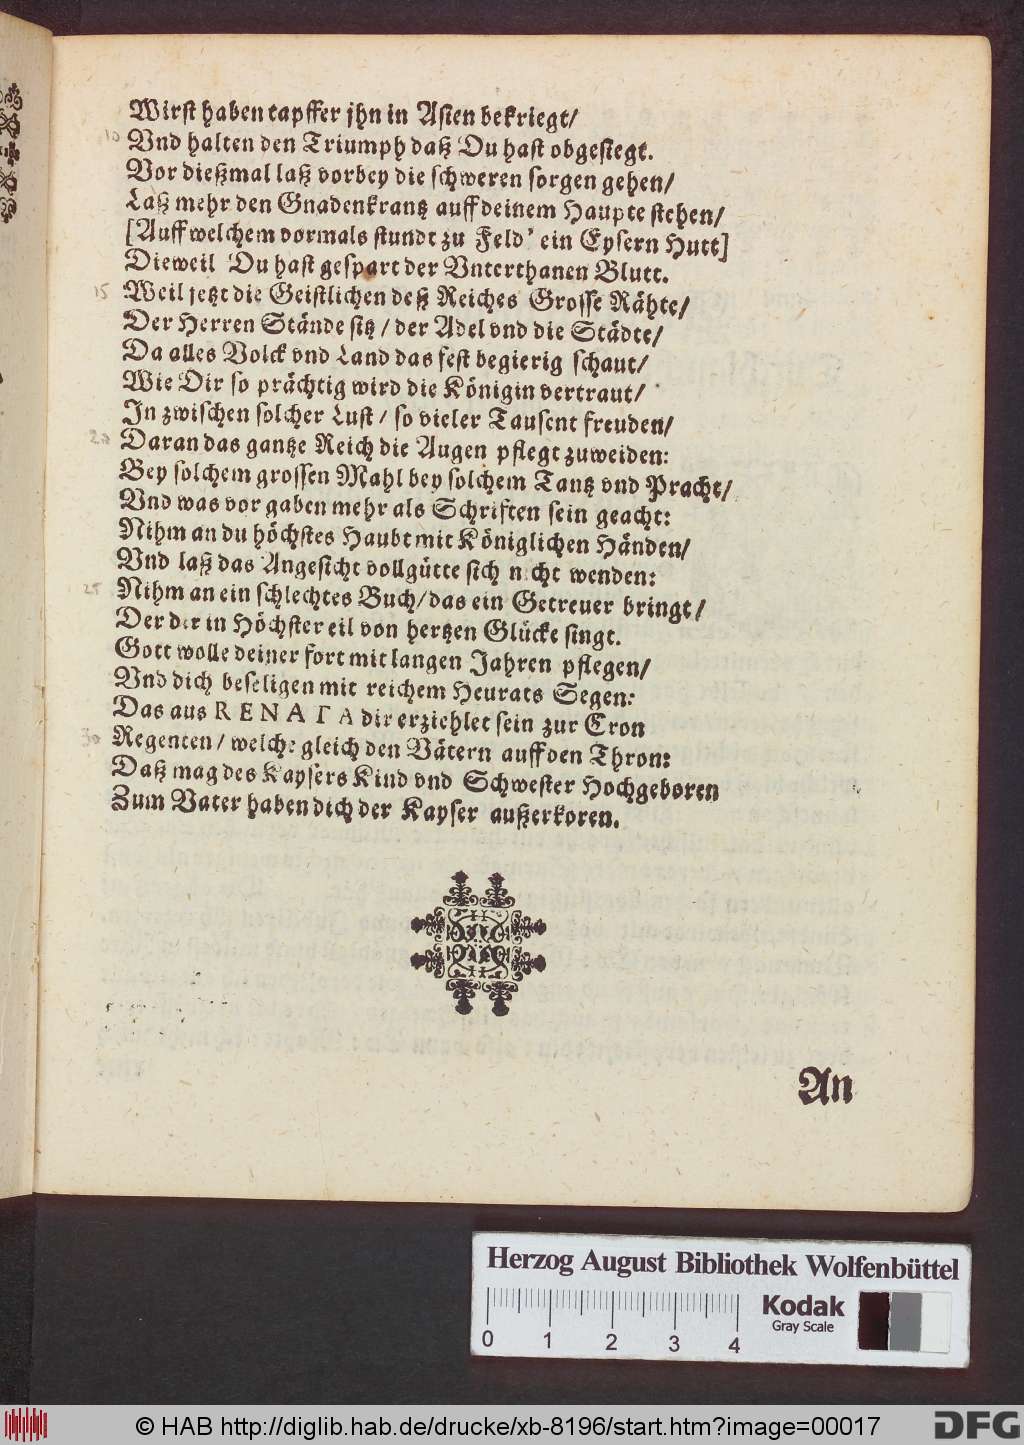 Wirst haben tapffer jhn in Asien bekriegt/
10 Vnd halten den Triumph daß Du hast obgesiegt.
Vor dießmal laß vorbey die schweren sorgen gehen/
Laß mehr den Gnadenkrantz auff deinem Haupte stehen/
[Auff welchem vormals stundt zu Feld' ein Eysern Hutt]
Dieweil Du hast gespart der Vnterthanen Blutt.
15 Weil jetzt die Geistlichen deß Reiches Grosse Rähte/
Der Herren Stände sitz / der Adel vnd die Städte/
Da alles Volck vnd Land das fest begierig schaut/
Wie Dir so prächtig wird die Königin vertraut/
In zwischen solcher Lust / so vieler Tausent freuden/
20 Daran das gantze Reich die Augen pflegt zuweiden:
Bey solchem grossen Mahl bey solchem Tantz vnd Pracht/
Vnd was vor gaben mehr als Schrifften sein geacht:
Nihm an du höchstes Haubt mit Königlichen Händen/
Vnd laß das Angesicht vollgütte sich nicht wenden:
25 Nihm an ein schlechtes Buch/ das ein Getreuer bringt/
Der der in Höchster eil von hertzen Glücke singt.
Gott wolle deiner fort mit langen Jahren pflegen/
Vnd dich beseligen mit reichem Heurats Segen:
Das aus RENATA dir erziehlet sein zur Cron
30 Regenten/ welche gleich den Vätern auff den Thron:
Daß mag des Kaysers Kind vnd Schwester Hochgeboren
Zum Vater haben dich der Kayser außerkoren.
An
Herzog August Bibliothek Wolfenbüttel
0 1 2 3 4
Kodak
Gray Scale
© HAB http://diglib.hab.de/drucke/xb-8196/start.htm?image=00017
DFG